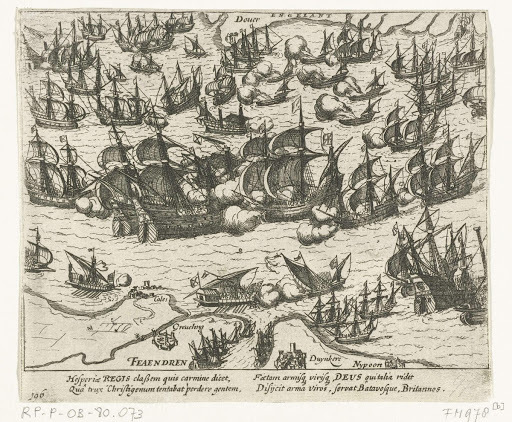 Dover ENGELANT
Cales
Greveling
FLAENDREN
Duynkerc
Nypoort
Hesperiæ REGIS claßem quis carmine dicet,
Quâ trux Christigenum tentabat perdere gentem,
Fœtam armisq́ virisq́, DEUS qui talia ridet
Disÿcit arma viros, servat Batavosque, Britannos.
196
RP-P-OB-80.073
FM978[b]